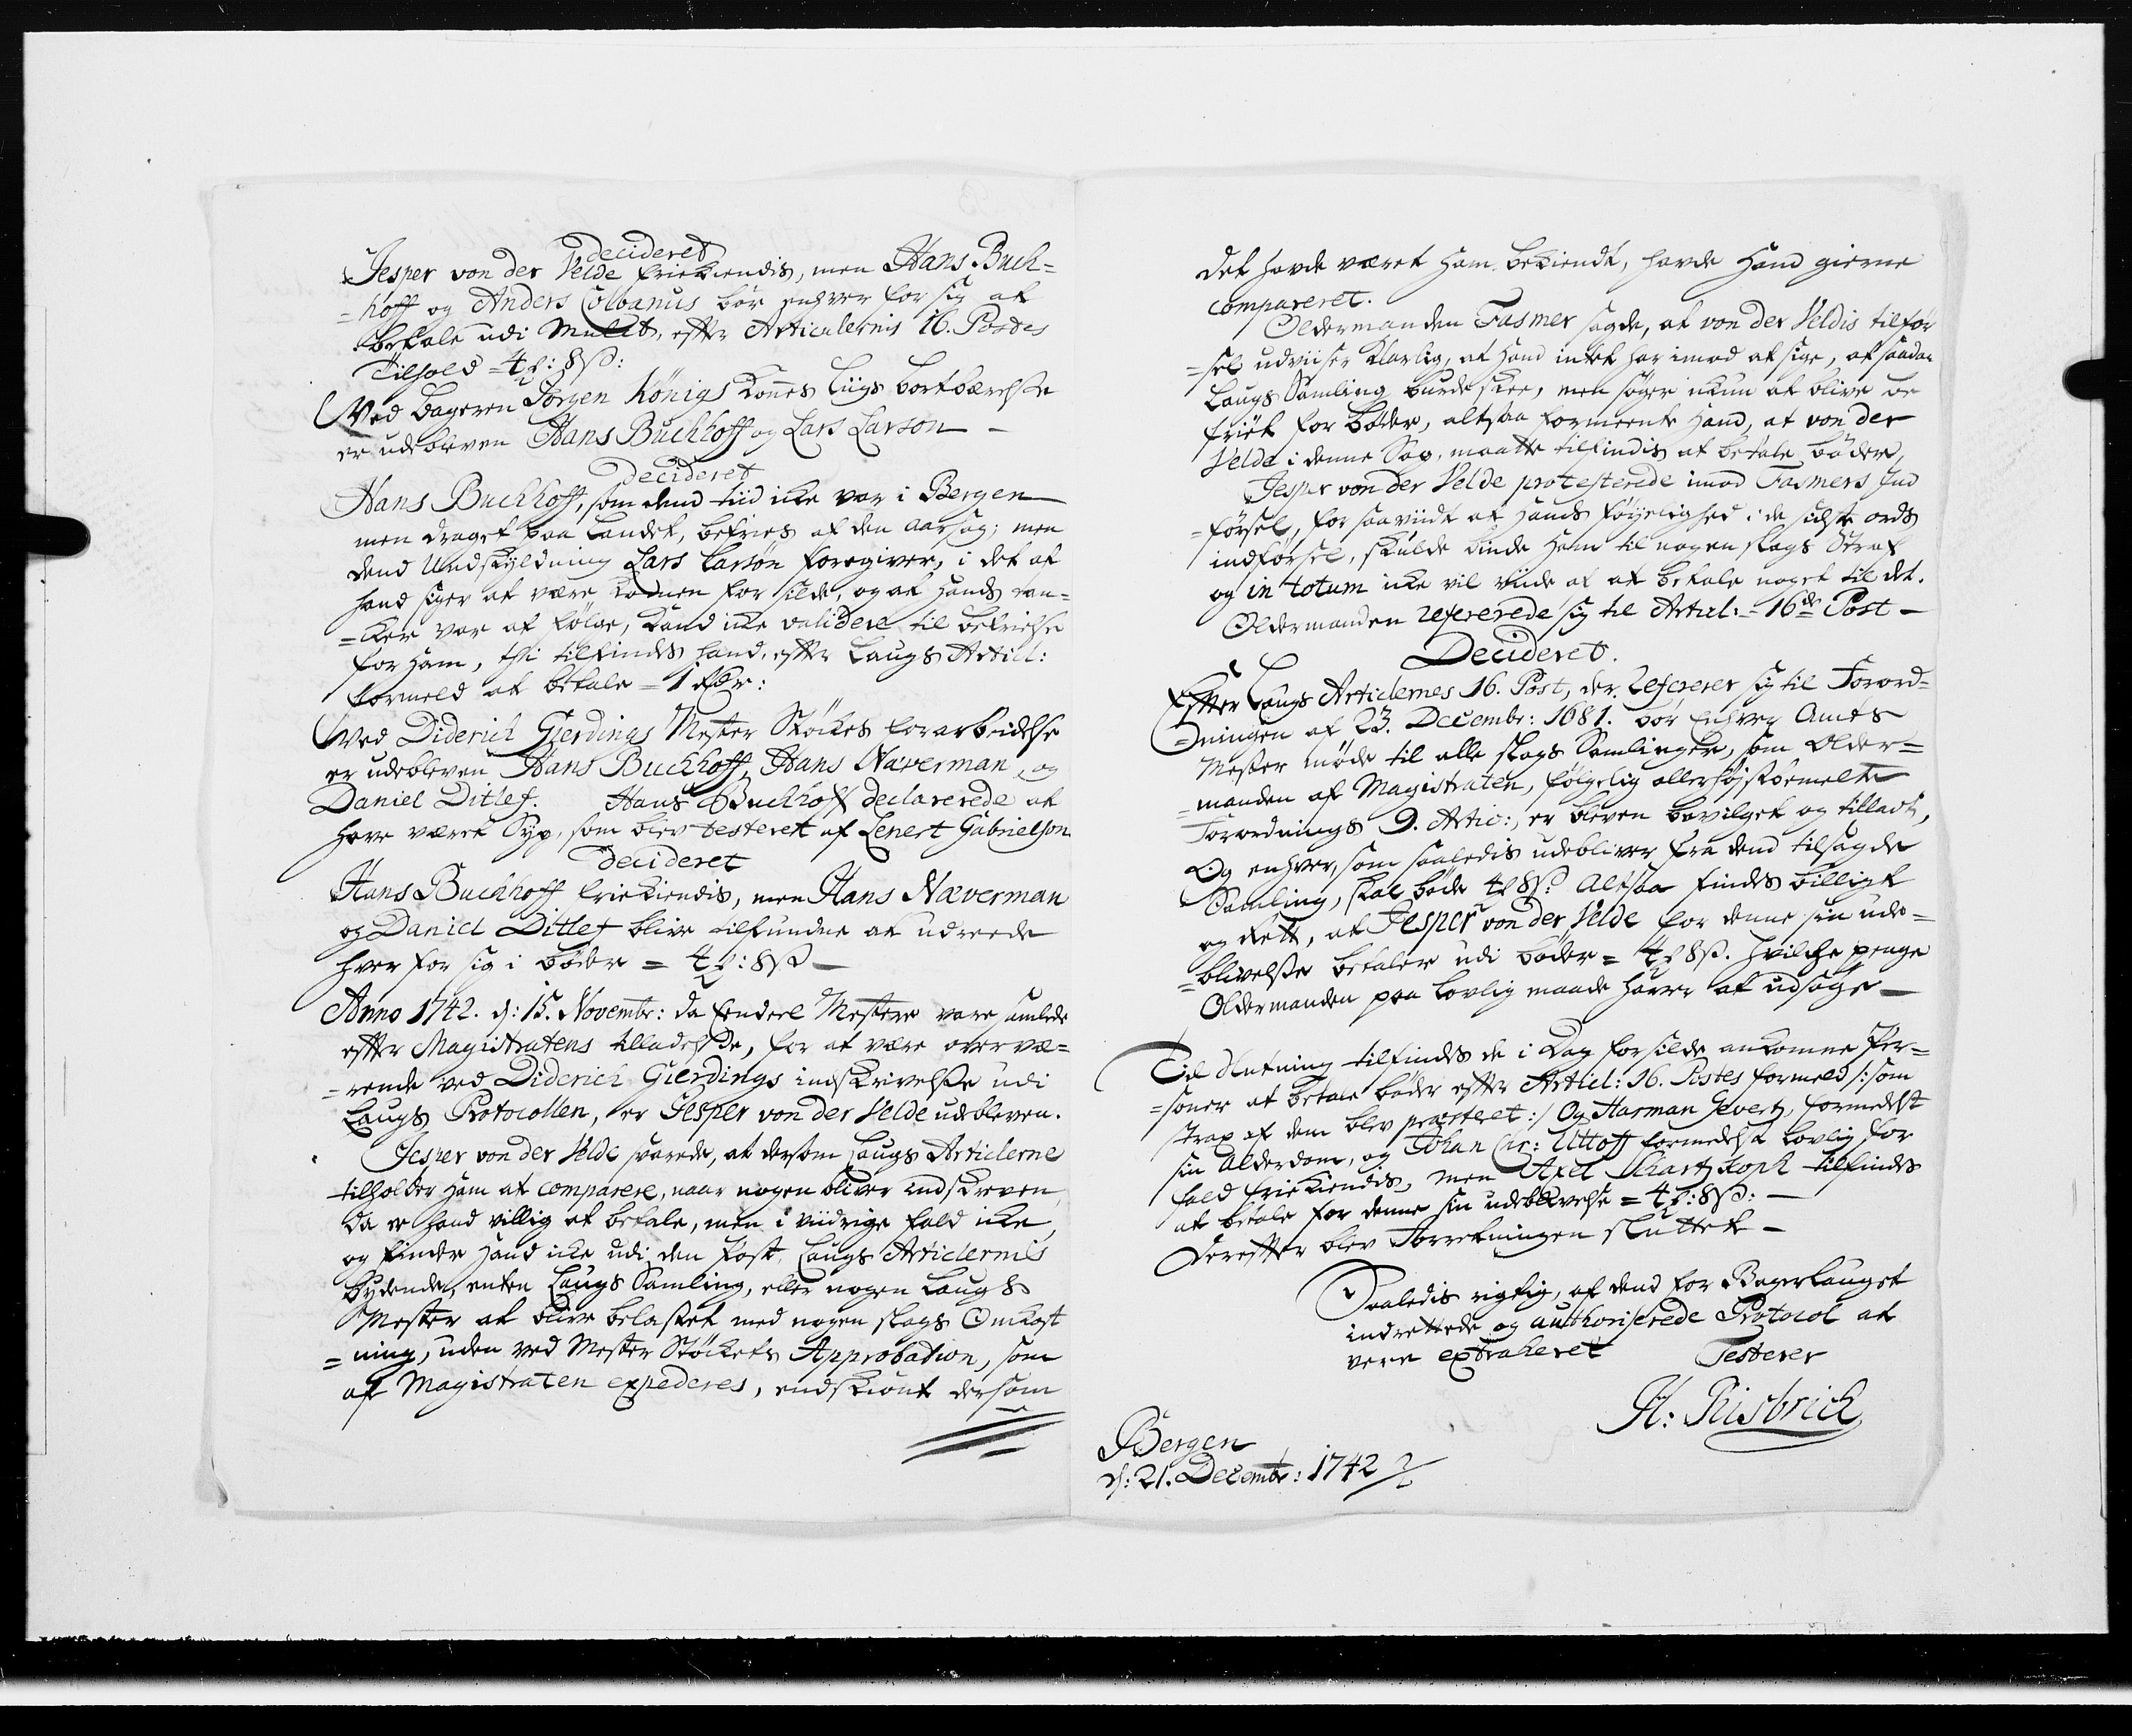 Decideret
Jesper von der Velde friekiendis, men Hans Buch=
=hoff og Anders Colbanus bør enhver for sig at
betale udi Mulct, efter Articulernis 16. Postes
Tilhold = 4 : 8 ß:
Ved Bageren Jörgen Königs Kones Liigs bortbærelse
er udebleven Hans Buchhoff og Lars Larson —
Decideret
Hans Buchhoff, som dend tiid icke var i Bergen
men draget paa Landet, befries af den aarsag; men
dend Undskyldning Lars Larsön foregiver, i det at
hand siger at være kommen for silde, og at hands tan=
=ker var at følge, kand icke validere til befrielse
for ham, thi tilfindes hand, efter Laugs Articl:
formeld at betale = 1 Rdlr:
Ved Diderich Gierdings Mester Støckes forarbeidelse
er udebleven Hans Buchhoff, Hans Næverman, og
Daniel Ditlef. Hans Buchhoff declarerede at
have været Syg, som blev testeret af Lenert Gabrielson
Decideret
Hans Buchhoff friekiendis, men Hans Næverman
og Daniel Ditlef blive tilfundne at udreede
hver for sig i bøder = 4 : 8 ß —
Anno 1742. d: 15. Novembr: da Eendeel Mestere vare samlede
efter Magistratens tilladelse, for at være overvæ=
=rende ved Diderich Gierdings indskrivelse udi
Laugs Protocollen, er Jesper von der Velde udebleven.
Jesper von der Velde svarede, at dersom Laugs Articlerne
tilholder ham at comparere, naar nogen bliver indskreven,
da er hand villig at betale, men i viidrige fald icke,
og finder hand icke udi den Post, Laugs Articlernis
bydende, enten Laugs Samling, eller nogen Laugs
Mester at blive belastet med nogen slags Omkost
=ning, uden ved Mester Støckets Approbation, som
af Magistraten expederes, endskiönt dersom
det hafde været ham bekiendt, hafde hand gierne
compareret.
Oldermanden Fasmer sagde, at von der Veldis tilfør
=sel udviiser klarlig, at hand intet har imod at sige, at saadan
Laugs Samling burde skee, men søger ikun at blive be
friet for bøder, altsaa formeente hand, at von der
Velde i denne Sag maatte tilfindis at betale bøder,
Jesper von der Velde protesterede imod Fasmers Ind
=førsel, for saaviidt at hands føyelighed i de sidste ords
indførsel, skulde binde ham til nogen slags Straf
og in totum icke vil viide af at betale noget til det.
Oldermanden refererede sig til Articl: 16de Post —
Decideret.
Efter Laugs Articlernes 16. Post, der refererer sig til Forord=
=ningen af 23. Decembr: 1681. bør Enhver Amts
Mester møde til alle slags Samlinger, som Older=
=manden af Magistraten, følgelig allerhøjstbemelte
Forordnings 9. Artic:, er bleven bevilget og tilladt,
Og enhver, som saaledis udebliver fra dend tilsagde
Samling, skal bøde 4 8 ß: Altsaa findes billigt
og Rett, at Jesper von der Velde for denne sin ude=
=blivelse betaler udi bøder = 4 8 ß. hvilche penge
Oldermanden paa lovlig maade haver at udsøge —
Til Slutning tilfindes de i Dag forsilde ankomne Per=
=soner at betale bøder efter Articl: 16. Postes formeld /: som
strax af dem blev præsteret :/ Og Harman Gevert, formedelst
sin Alderdom, og Johan Chr: Uttoff formedelst lovlig for
fald friekiendis, men Axel Schartz Koph tilfindes
at betale for denne sin udeblivelse = 4 : 8 ß: —
Derefter blev Forretningen sluttet —
Saaledis rigtig, af dend for Bagerlauget
indrettede og authoriserede Protocol at
vere extraheret Testerer
H: Risbrich
Bergen
d: 21. Decembr: 1742